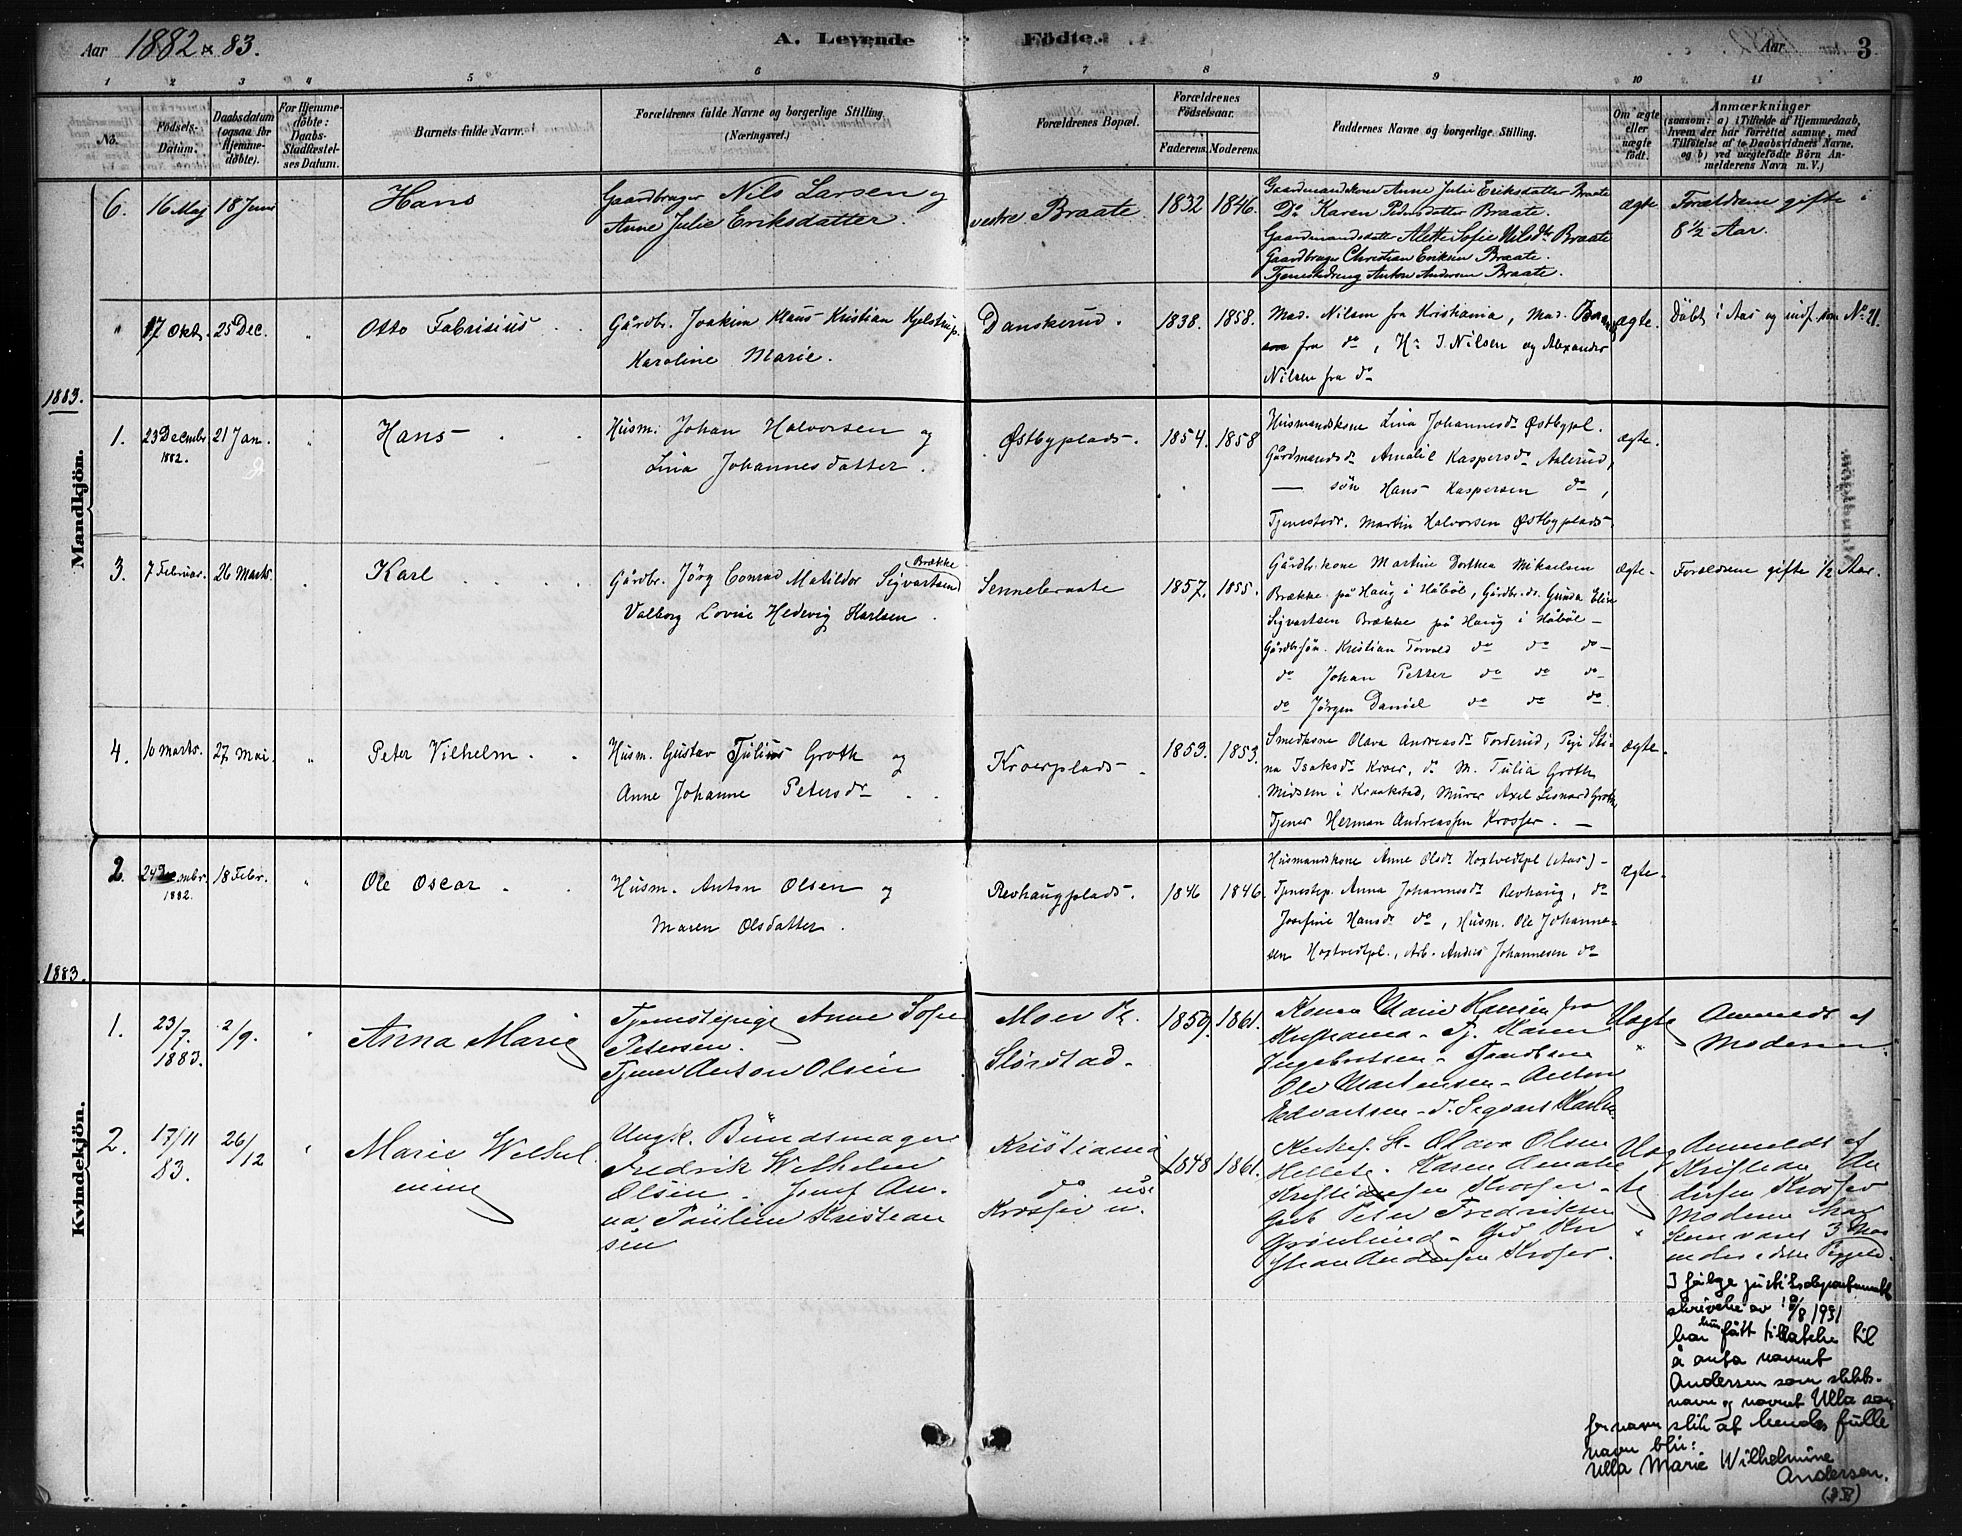 Aar 1882 & 83.
A. Levende Födte.
Aar
3
1 2 3 4 5 6 7 8 9 10 11
No.
Födsels-
Datum.
Daabsdatum
(ogsaa for
Hjemme-
døbte).
For Hjemme-
døbte:
Daabs-
Stadfæstel-
ses Datum.
Barnets fulde Navn.
Forældrenes fulde Navne og borgerlige Stilling
(Næringsvei.)
Forældrenes Bopæl.
Forældrenes
Födselsaar.
Faderens. Moderens.
Faddernes Navne og borgerlige Stilling.
Om ægte
eller
uægte
født.
Anmærkninger
(saasom: a) i Tilfælde af Hjemmedaab,
hvem der har forrettet samme, med
Tilføielse af to Daabsvidners Navne.
og b) ved uægtefødte Börn An-
melderens Navn m. V.)
Mandkjön.
6. 16 Maj 18 Juni
Hans
Gaardbruger Nils Larsen og
Anne Julie Eriksdatter.
vestre Braate
1832 1846.
Gaardmandskone Anne Julie Eriksdatter Braate
Do Karen Pedersdatter Braate.
Gaardmandsdatter Alette Sofie Nilsdtr Braate
Gaardbruger Christian Eriksen Braate.
Tjenestedreng Anton Andersen Braate.
ægte
Forældrene gifte i
8 1/2 Aar.
" 17 Okt. 25 Dec. "
Otto Fabrisius
Gårdbr. Joakim Klaus Kristian Kjelstrup.
Karoline Marie.
Danskerud.
1838. 1858.
Mad. Nilsen fra Kristiania, Mad.
fra do, Hr I. Nilsen og Alexander
Nilsen fra do
ægte.
Döbt i Aas og indf. som No 21.
1883.
1. 23 Decembr 21 Jan. "
1882.
Hans
Husm. Johan Halvorsen og
Lina Johannesdatter.
Østbyplads.
1854. 1858
Husmandskone Lina Johannesdr Østbypl.
Gårdmandsdr Amalie Kaspersdr Aalerud,
— søn Hans Kaspersen do,
Tjenestedr. Martin Halvorsen Østbyplads
ægte.
3. 7 Februar. 26 Marts. "
Karl
Brække
Gårdbr. Jörg Conrad Matildor Sigvartsen
Valborg Lovise Hedevig Karlsen.
Sennebraate
1857. 1855.
Gårdbr.kone Martine Dorthea Mikaelsen
Brække på Haug i Håböl, Gårdbr.dr. Gunda Elise
Sigvartsen Brække på Haug i Håböl
Gårdbrsön. Kristian Torvald do do do
do Johan Petter do do do
do Jörgen Daniel do do do
ægte
Forældrene gifte 1/2 Aar.
4. 10 Marts. 27 Mai. "
Peter Vilhelm.
Husm. Gustav Julius Groth og
Anne Johanne Petersdr
Kroerplads
1853. 1853.
Smedkone Olava Andreasdr Forderud, Pige Sti-
na Isaksdr Kroer, do M. Julia Groth
Midsem i Kraakstad, Murer Axel Leonard Groth,
Tjener Herman Andreassen Krosser.
ægte
2. 24 Decembr. 18 Febr. "
1882.
Ole Oscar
Husm. Anton Olsen og
Maren Olsdatter.
Revhaugplads.
1846 1846.
Husmandskone Anne Olsdr Hoxtvedtpl (Aas)
Tjenestep. Anna Johannesdr Revhaug, do
Josefine Hansdr do, Husm. Ole Johanne-
sen Hoxtvedtpl., Arb. Andris Johannesen do
ægte
1883.
Kvindekjön.
1. 23/7. 2/9. "
1883.
Anna Marie
Tjenestepige Anne Sofie
Petersen.
Tjener Anton Olsen
Moer
Störstad.
1859. 1861.
Konen Marie Hansen fra
Kristiania Pj. Karen
Ingebretsen
Ole Martinsen Anton
Edvartsen
Uægte
Anmeldt af
Moderen
2. 17/11 26/12 "
83.
Marie Wilhel
mine
Ungk. Bundsmager
Fredrik Wilhelm
Olsen. Jomf. An-
na Pauline Kristian
sen
Kristiania
do
Krosser
1848 1861.
Olava Olsen
Karen Amalie
Kristiansen Krosser
Peter Fredriksen
Grönlund Kri
stian Andersen Krosser.
Uæg
te
Anmeldt af
Kristian An
dersen Krosser
Moderen har
kun været 3 Maa
neder i dette
I følge justitsdepartementets
skrivelse av 18/8 1931
har hun fått tillatelse til
å anta navnet
Andersen som slekts-
navn og navnet Ulla som
fornavn slik at hendes fulle
navn blir:
Ulla Marie Wilhelmine
Andersen.